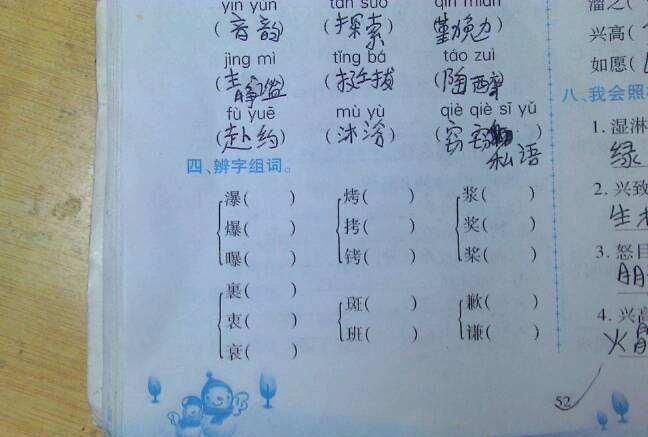 yīn yùn tàn suǒ qín miǎn
(音韵) (探索) (勤勉)
jìng mì tǐng bá táo zuì
(静谧) (挺拔) (陶醉)
fù yuē mù yù qiè qiè sī yǔ
(赴约) (沐浴) (窃窃私语)
四、辨字组词。
瀑( ) 烤( ) 浆( )
爆( ) 拷( ) 奖( )
曝( ) 铐( ) 桨( )
裹( ) 斑( ) 歉( )
衷( ) 班( ) 谦( )
衰( )
52
溜之(
兴高(
如愿(
八、我会照
1. 湿淋
绿
2. 兴致
生
3. 怒目
4. 兴高
火冒